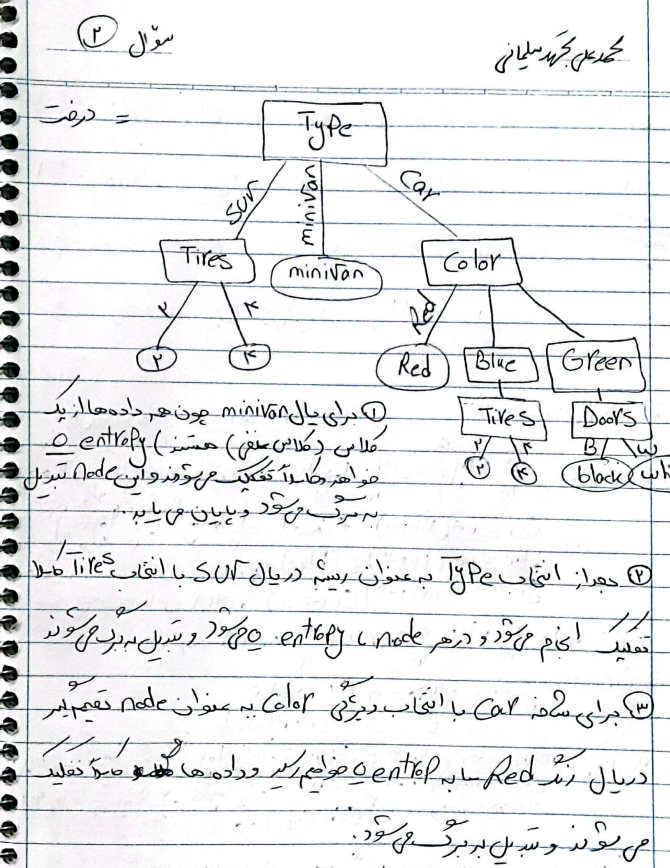 محمدعلی مجتهد سلیمانی
سؤال ۲
درخت =
Type
SUV minivan Car
Tires minivan Color
۲ ۴ Red
۲ ۴ Red Blue Green
Tires Doors
۲ ۴ B W
۲ ۴ black
① برای یال minivan چون همه داده‌ها از یک
کلاس (کلاس منفی) هستند، entropy 0
خواهد و کاملاً تفکیک می‌شوند و این Node تبدیل
به برگ می‌شود و پایان می‌یابد.
② بعد از انتخاب Type به عنوان ریشه در یال SUV با انتخاب Tires کاملا
تفکیک انجام می‌شود و در هر node، entropy 0 می‌شود و تبدیل به برگ می‌شوند
③ برای شاخه Car با انتخاب ویژگی Color به عنوان node تقسیم گیر
در یال رنگ Red ما به entrop 0 خواهیم رسید و داده ها کاملاً تفکیک
می شوند و تبدیل به برگ می شود.